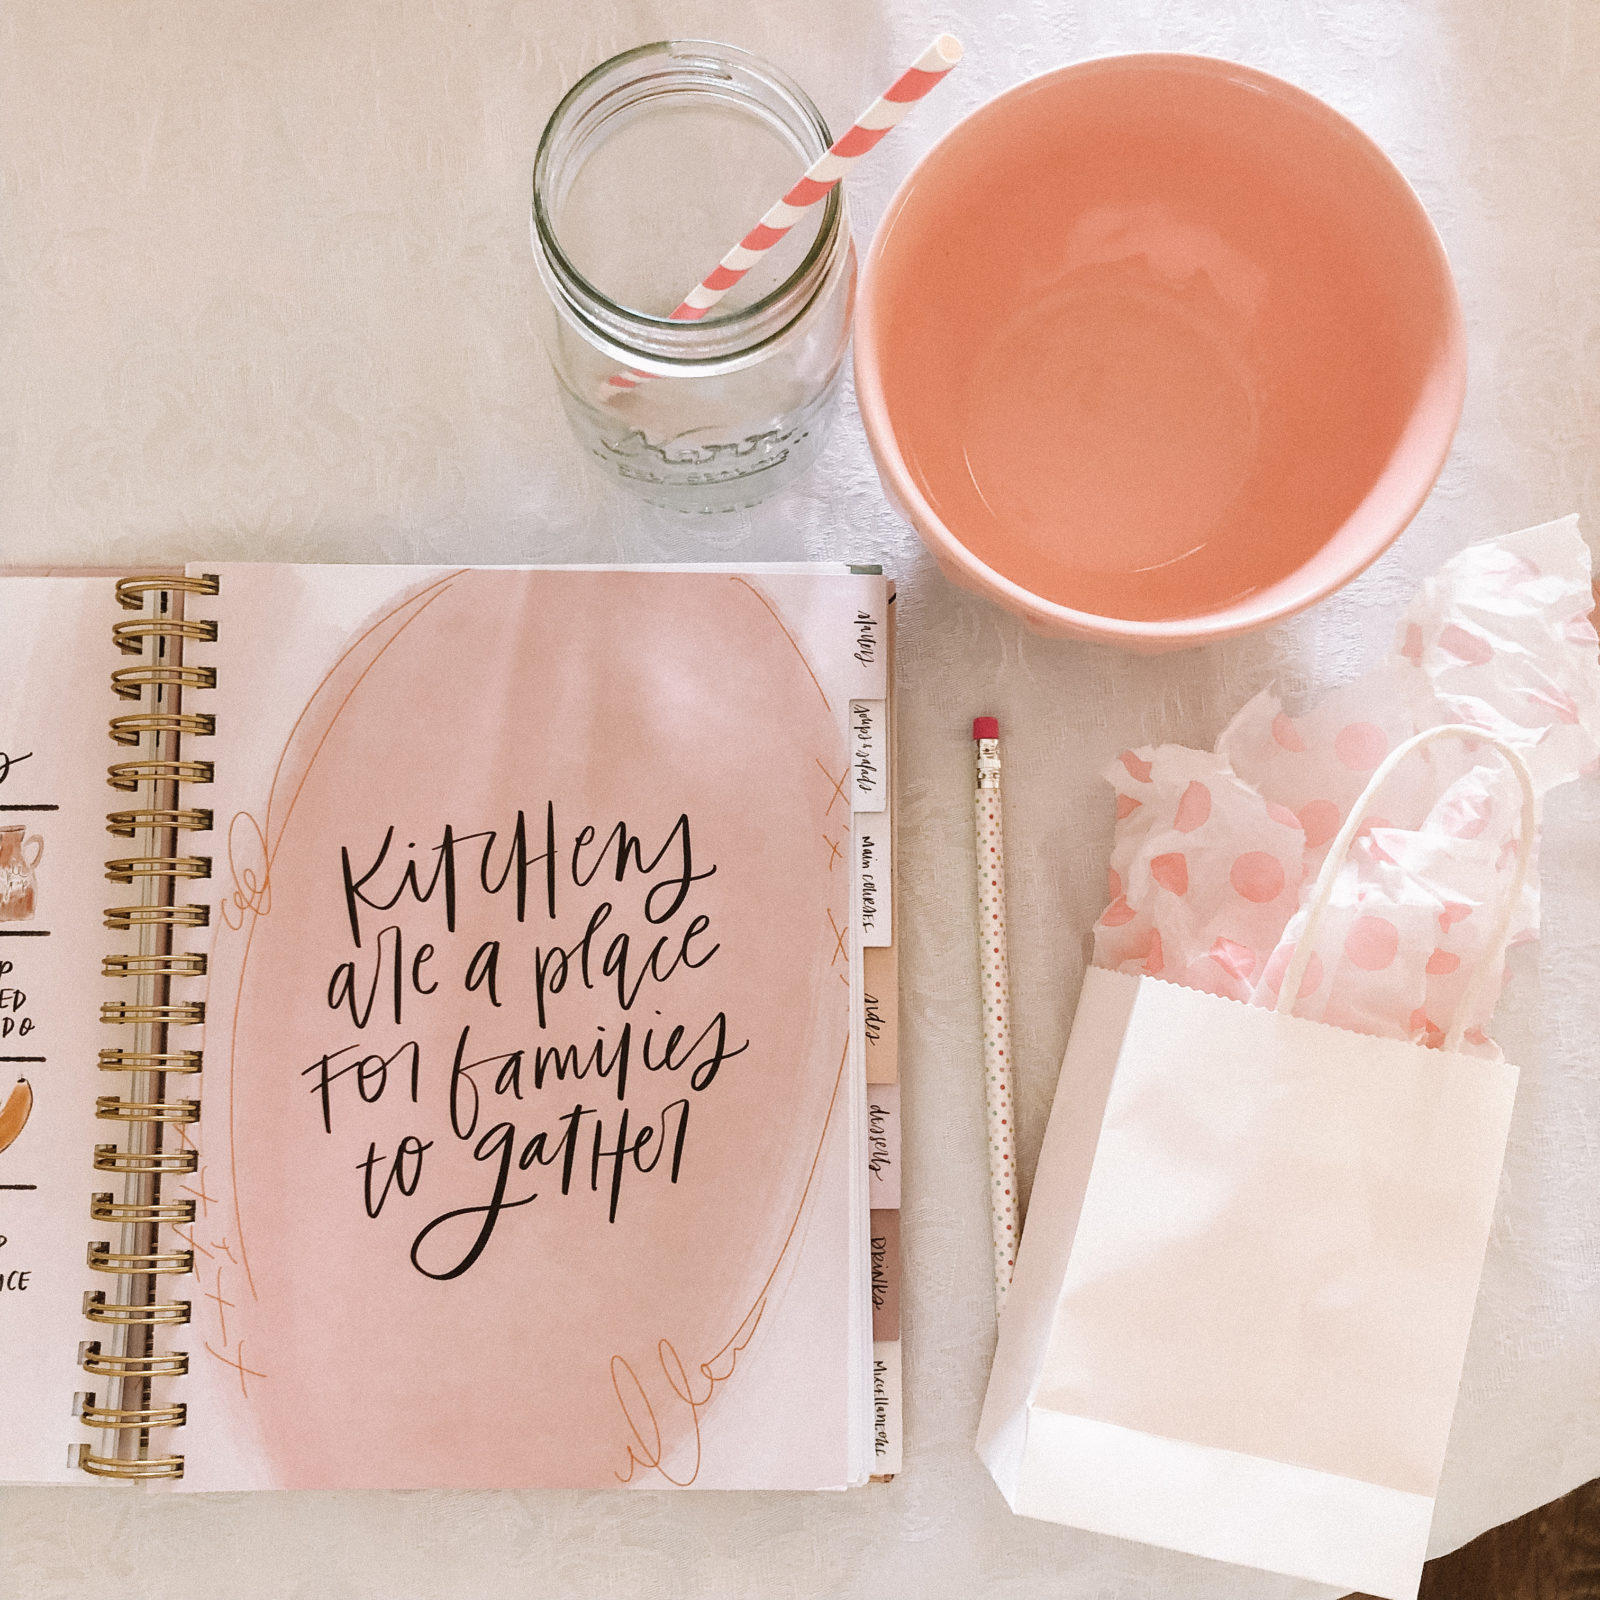 P
ED
DO
ICE
Kitchens
are a place
for families
to gather
starters
soups & salads
main courses
sides
desserts
DRINKS
Miscellaneous
Kerr
SELF SEALING